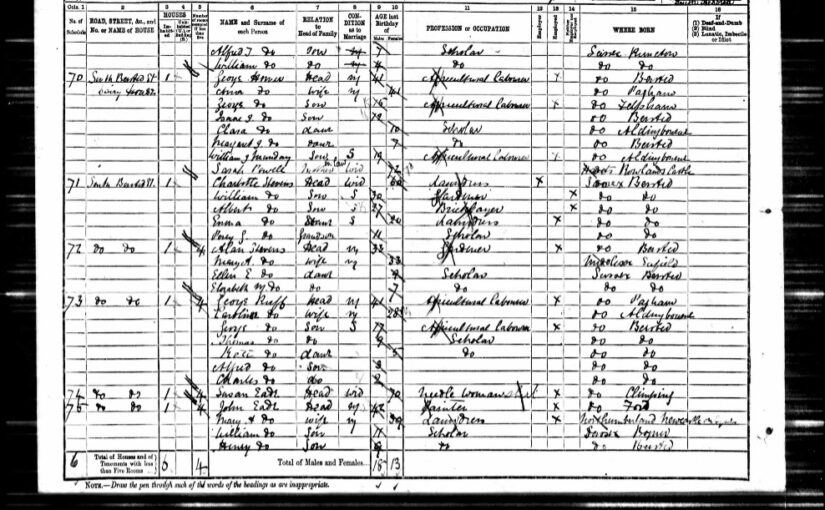 Cols. 1 2 3 4 5 6 7 8 9 10 11 12 13 14 15 16
No. of Schedule ROAD, STREET, &c., and No. or NAME of HOUSE HOUSES NAME and Surname of each Person RELATION to Head of Family CONDITION as to Marriage AGE last Birthday of PROFESSION or OCCUPATION Employer Employed WHERE BORN If (1) Deaf-and-Dumb (2) Blind (3) Lunatic, Imbecile or Idiot
Alfred J. do Son 7 Scholar Sussex Runcton
William do do 4 do do do
70 South Bersted St. 1 George Head M 41 Agricultural Labourer X do Bersted
Anna do Wife M 41 do Pagham
George do Son 15 Agricultural Labourer X do Felpham
Isaac J. do Son 12 do Bersted
Clara do daur 10 Scholar do Aldingbourne
Margaret J. do daur 7 do do Bersted
William J. Munday Son in law S 19 Agricultural Labourer do Aldingbourne
Sarah Powell Wid 72 Hants Rowlands Castle
71 South Bersted St. 1 Charlotte Stevens Head Wid 60 Laundress X Sussex Bersted
William do Son S 30 do do
Albert do Son S 27 Bricklayer X do do
Emma do daur S 20 Laundress X do do
Percy J. do Grandson 11 Scholar do do
72 do do 1 4 Alan Stevens Head M 33 Gardener X do Bersted
Mary A. do Wife M 33 Middlesex Enfield
Ellen E. do daur 9 Scholar Sussex Bersted
Elizabeth M. do do 7 do do do
73 do do 1 4 George Ruff Head M 41 Agricultural Labourer X do Pagham
Caroline do Wife M 38 do Aldingbourne
George do Son S 17 Agricultural Labourer X do Bersted
Thomas do do 9 Scholar do do
Kate do daur 5 do do do
Alfred do Son 3 do do
Charles do do 2 do do
74 do do 1 4 Susan Earl Head Wid 70 Needle Woman X do Climping
75 do do 1 4 John Earl Head M 42 Painter X do Ford
Mary A. do Wife M 39 Laundress X Northumberland Newcastle
William do Son 11 Scholar Sussex Bognor
Henry do Son 9 do do Bersted
6 Total of Houses and of Tenements with less than Five Rooms 5 4 Total of Males and Females 18 13
NOTE.—Draw the pen through such of the words of the headings as are inappropriate.